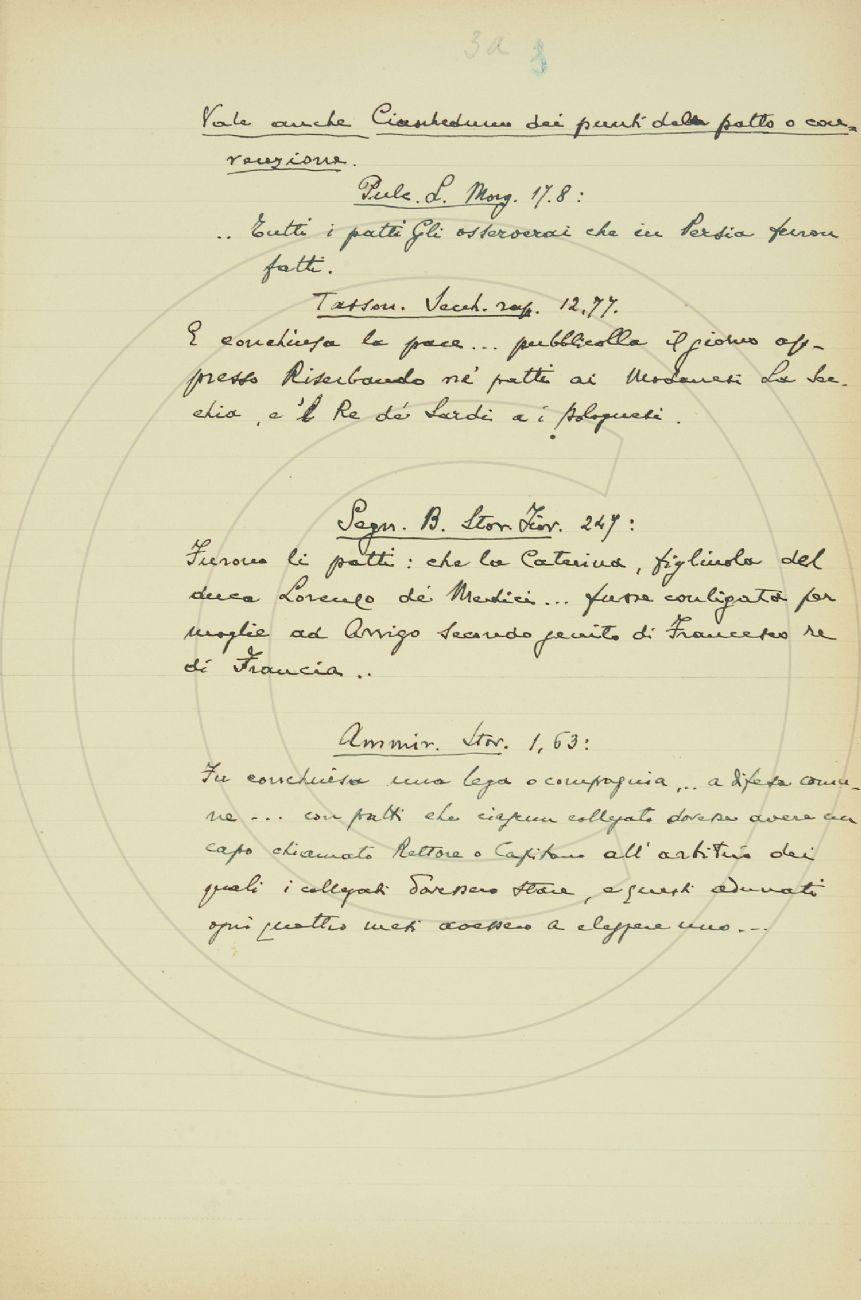 3a 8
Vale anche Ciascheduno dei punti del patto o con-
venzione.
Pulc. L. Morg. 17.8:
.. Tutti i patti Gli osserverai che in Persia furon
fatti.
Tasson. Secch. rap. 12,77.
E conchiusa la pace... pubblicolla il giorno ap-
presso Riserbando ne' patti ai Modanesi La Sec-
chia, e 'l Re de' Sardi a i Bolognesi.
Segn. B. Stor. Fior. 247:
Furono li patti: che la Caterina, figliuola del
duca Lorenzo de' Medici... fusse conligata per
moglie ad Arrigo secondo genito di Francesco re
di Francia..
Ammir. Stor. 1,63:
Fu conchiusa una lega o compagnia... a difesa comu-
ne ... con patti che ciascun collegato dovesse avere un
capo chiamato Rettore o Capitano all'arbitrio dei
quali i collegati dovessero stare, e questi adunati
ogni quattro mesi avessero a eleggere uno...